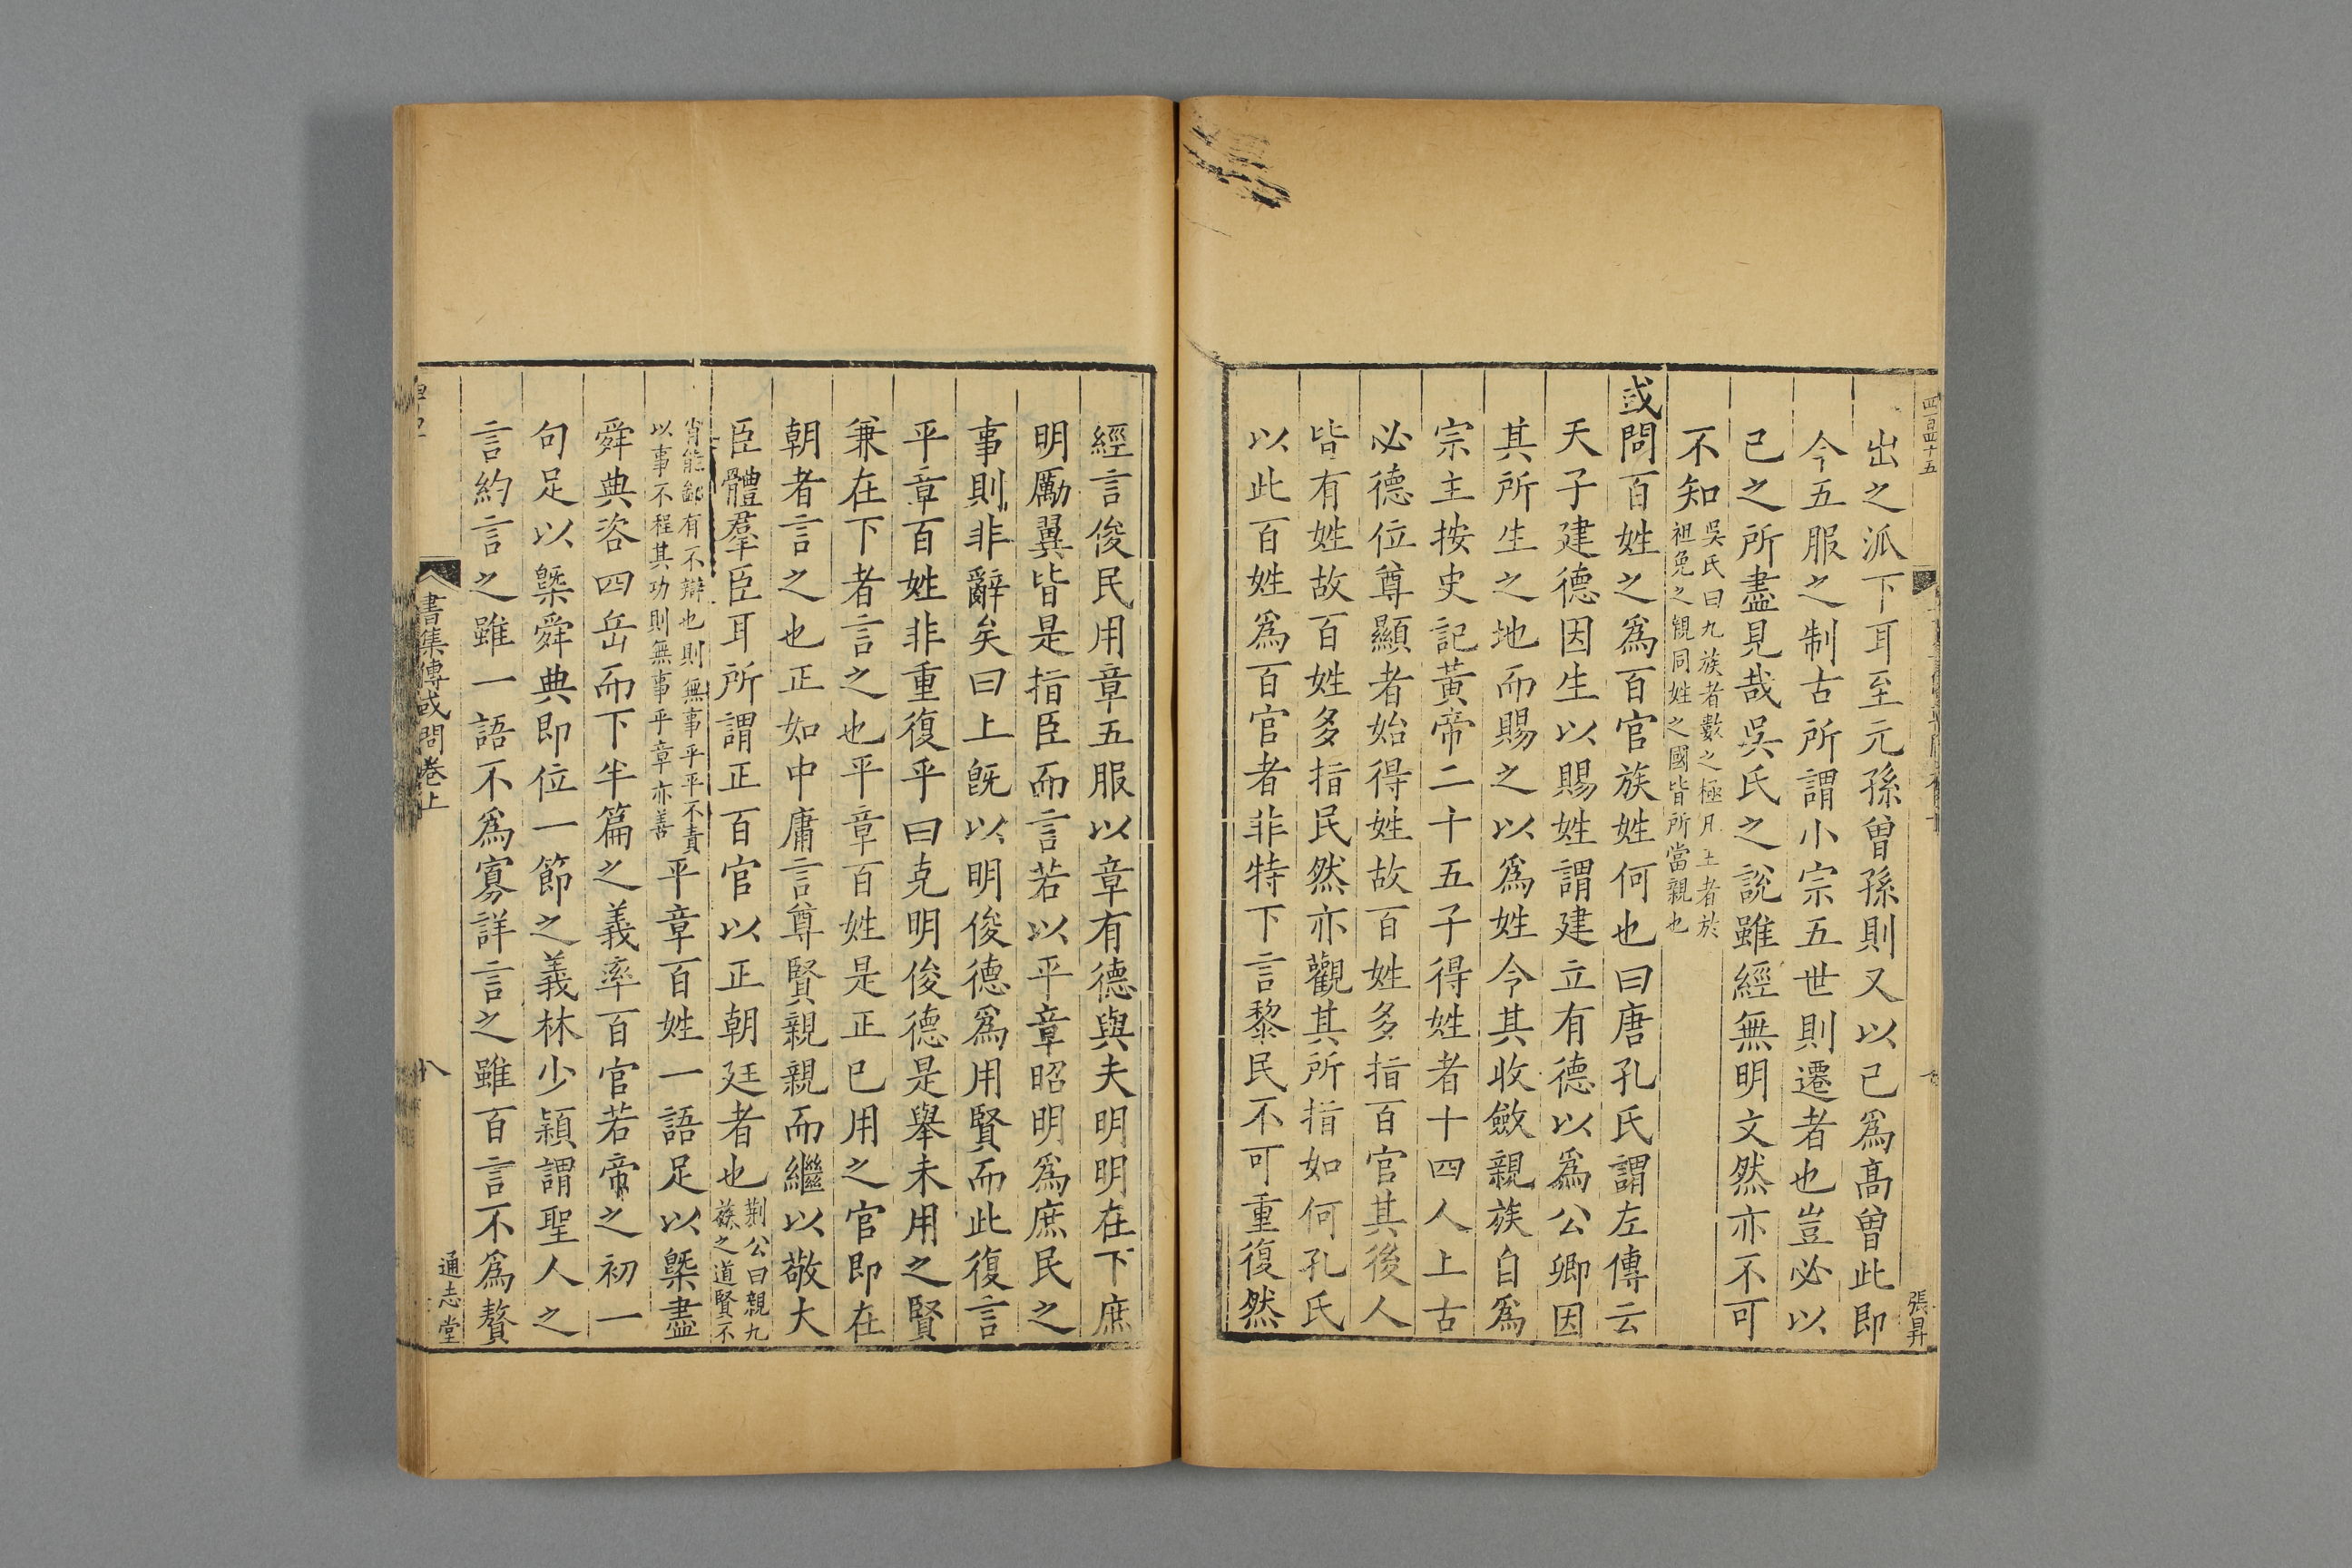 四百四十五
張昇
出之派下耳至元孫曾孫則又以己爲髙曾此即
今五服之制古所謂小宗五世則遷者也豈必以
己之所盡見哉吳氏之說雖經無明文然亦不可
不知吳氏曰九族者數之極凡王者於
袒免之親同姓之國皆所當親也
或問百姓之爲百官族姓何也曰唐孔氏謂左傳云
天子建德因生以賜姓謂建立有德以爲公卿因
其所生之地而賜之以爲姓令其收斂親族自爲
宗主按史記黃帝二十五子得姓者十四人上古
必德位尊顯者始得姓故百姓多指百官其後人
皆有姓故百姓多指民然亦觀其所指如何孔氏
以此百姓爲百官者非特下言黎民不可重復然
經言俊民用章五服以章有德與夫明明在下庶
明厲翼皆是指臣而言若以平章昭明爲庶民之
事則非辭矣曰上旣以明俊德爲用賢而此復言
平章百姓非重復乎曰克明俊德是舉未用之賢
兼在下者言之也平章百姓是正已用之官即在
朝者言之也正如中庸言尊賢親親而繼以敬大
臣體羣臣耳所謂正百官以正朝廷者也荆公曰親九
族之道賢不
肖能鄙有不辯也則無事乎平不責
以事不程其功則無事乎章亦善
平章百姓一語足以槩盡
舜典咨四岳而下半篇之義率百官若帝之初一
句足以槩舜典即位一節之義林少穎謂聖人之
言約言之雖一語不爲寡詳言之雖百言不爲贅
書集傳或問卷上
八
通志堂